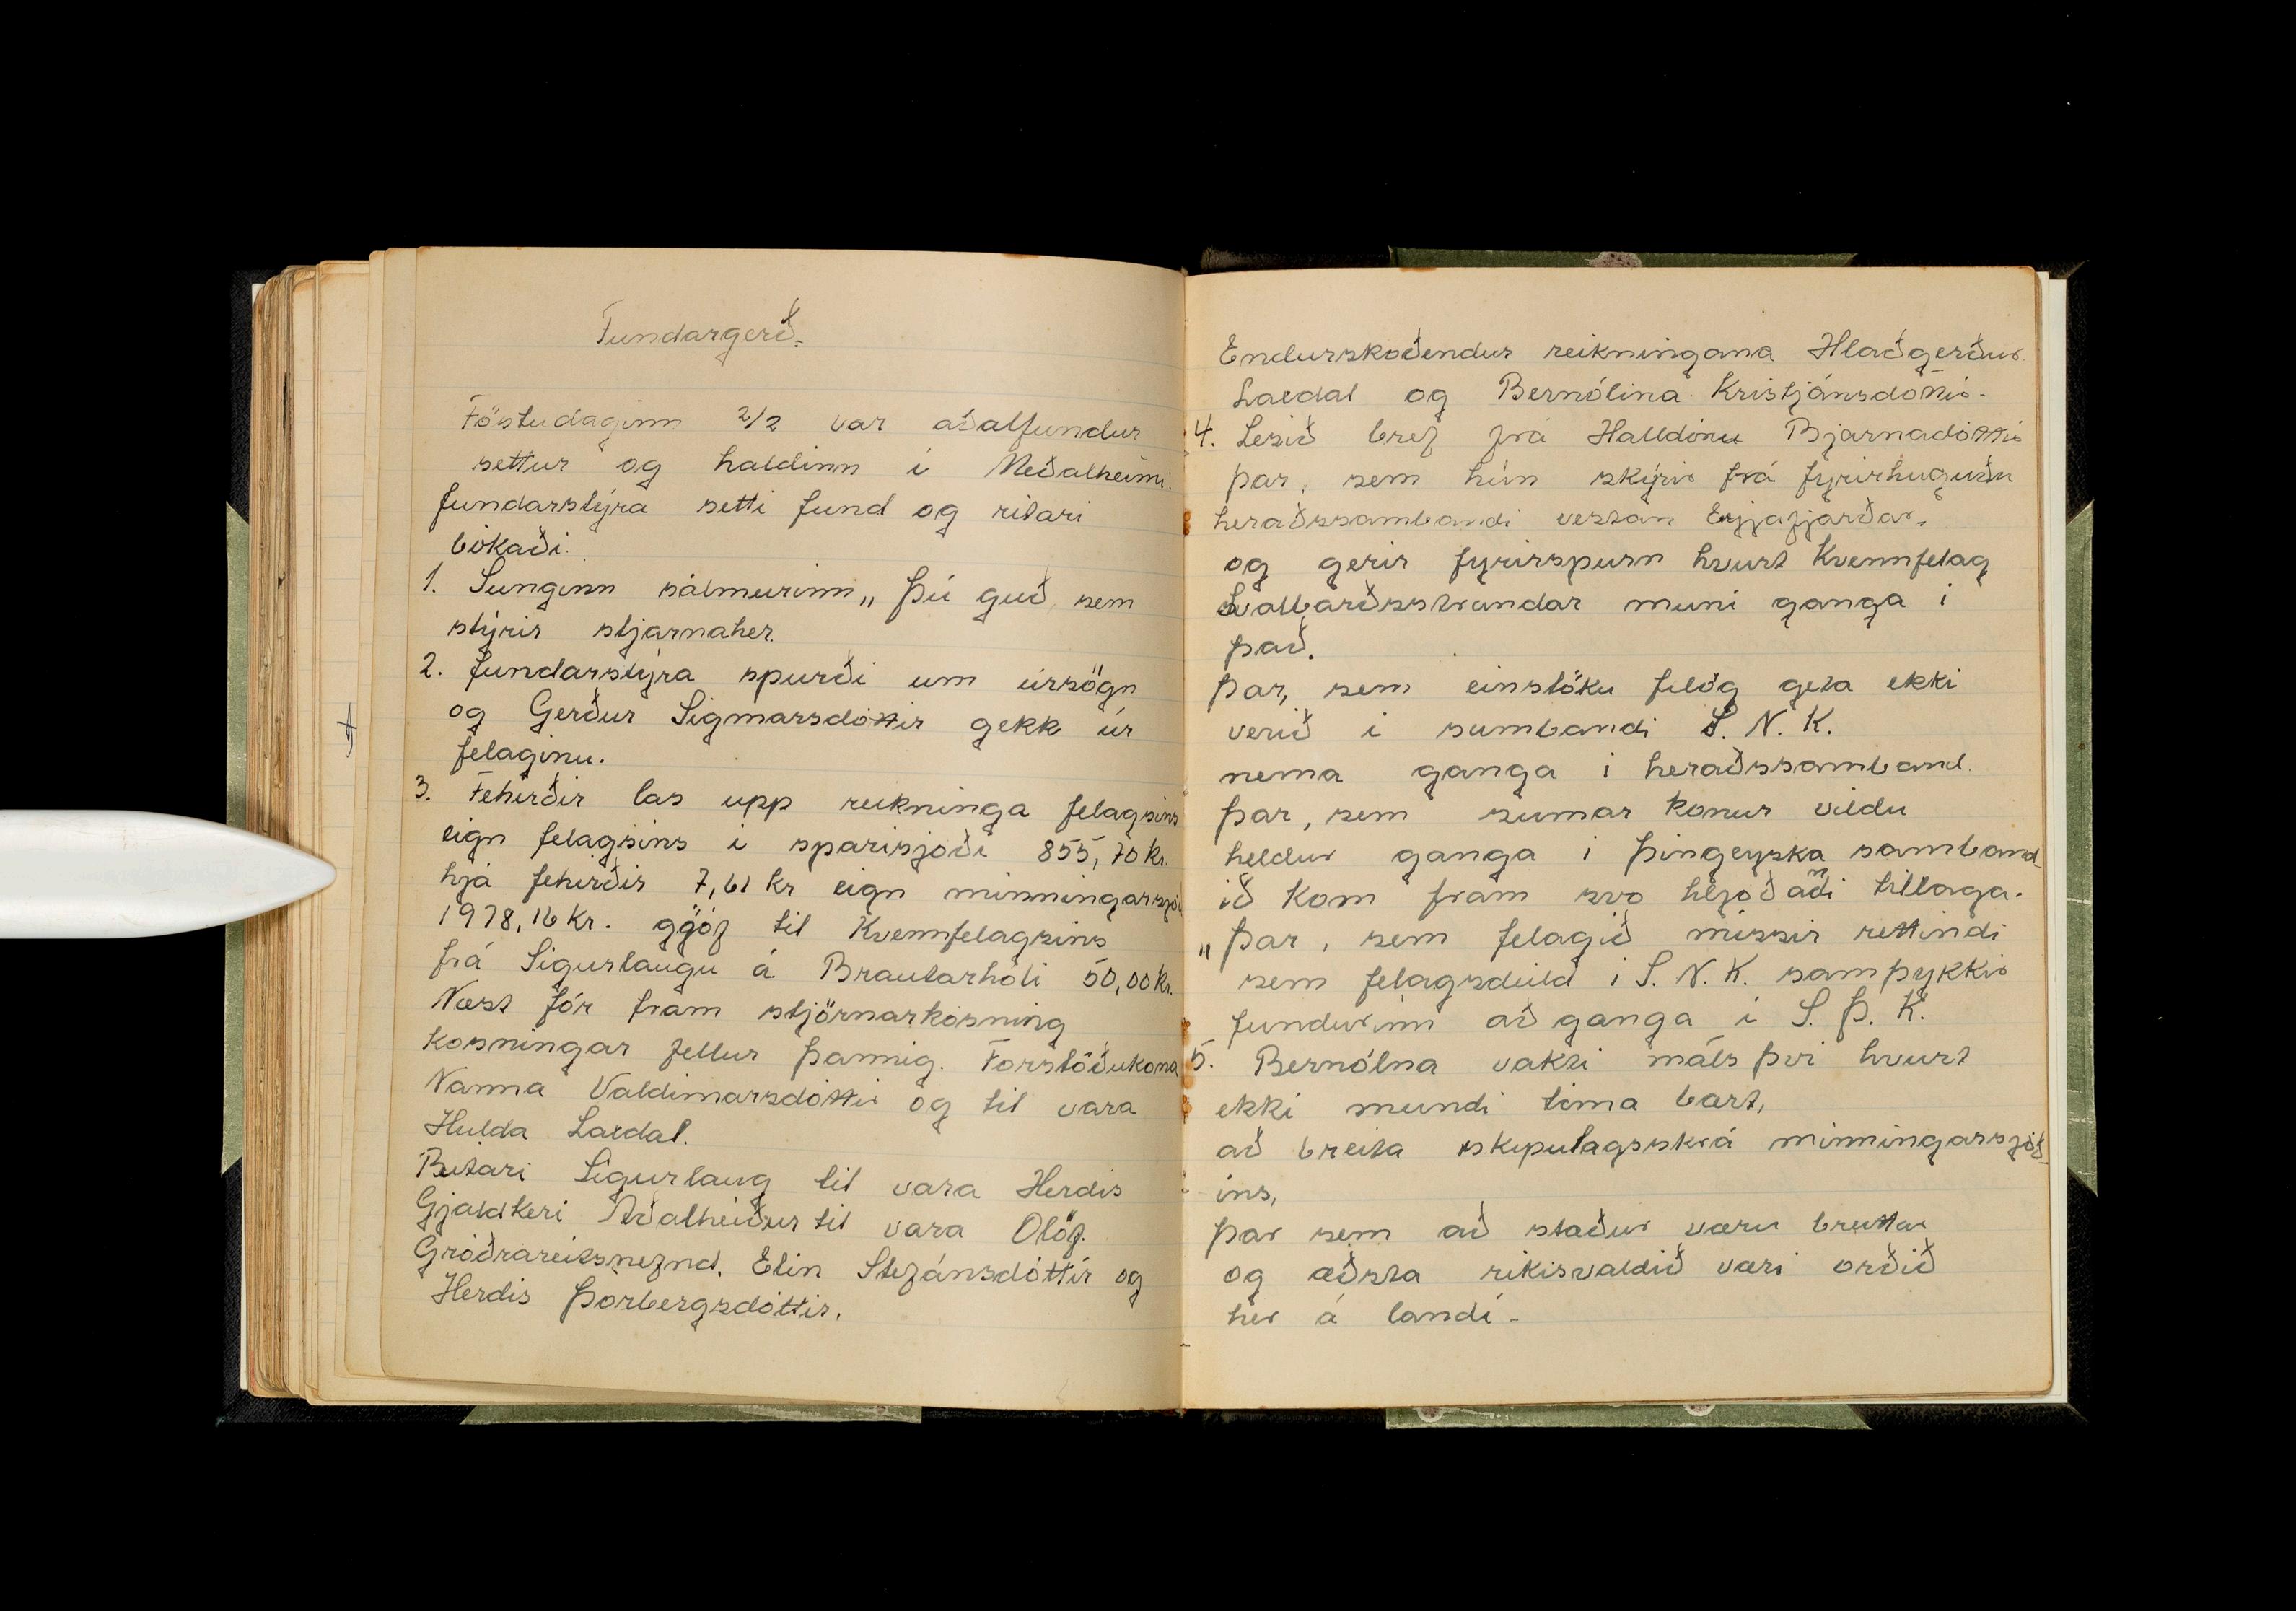 Fundargerð.
Föstudaginn 2/2 var aðalfundur
settur og haldinn i Meðalheimi.
fundarstýra setti fund og ritari
bókaði.
1. Sunginn sálmurinn „ Þú guð, sem
stýrir stjarnaher.
2. fundarstýra spurði um úrsögn
og Gerður Sigmarsdóttir gekk úr
felaginu.
3. Fehirðir las upp reikninga felagsins
eign felagsins i sparisjoði 855,70 kr.
hjá fehirðir 7,61 kr eign minningarsjóð
1978,16 kr. gjöf til Kvennfelagsins
frá Sigurlaugu á Brautarhóli 50,00 kr.
Næst fór fram stjörnarkosning
kosningar fellur þannig. Forstöðukona
Nanna Valdimarsdóttir og til vara
Hulda Laxdal.
Ritari Sigurlaug til vara Herdis
Gjaldkeri Aðalheiður til vara Olöf.
Gróðrareitsnefnd. Elin Stefánsdóttir og
Herdis Þorbergsdóttir.
Endurskoðendur reikningana Hlaðgerður
Laxdal og Bernólina Kristjánsdóttir.
4. Lesið bref frá Halldóru Bjarnadóttir
þar, sem hún skýrir frá fyrirhuguðu
heraðssambandi vestan Eyjafjarðar.
og gerir fyrirspurn hvurt Kvennfelag
Svalbarðsstrandar muni ganga i
það.
Þar, sem einstöku felög geta ekki
verið i sambandi S. N. K.
nema ganga i heraðssamband.
Þar, sem sumar konur vildu
heldur ganga i Þingeyska samband-
ið kom fram svo hljoðandi tillaga.
„ Þar, sem felagið missir rettindi
sem felagsdeild i S. N. K. samþykkir
fundurinn að ganga i S. Þ. K.
5. Bernólna vakti máls þvi hvurt
ekki mundi timabært,
að breita skipulagsskrá minningarsjóð-
ins,
þar sem að staður væru breittar
og æðsta rikisvaldið væri orðið
her á landi.